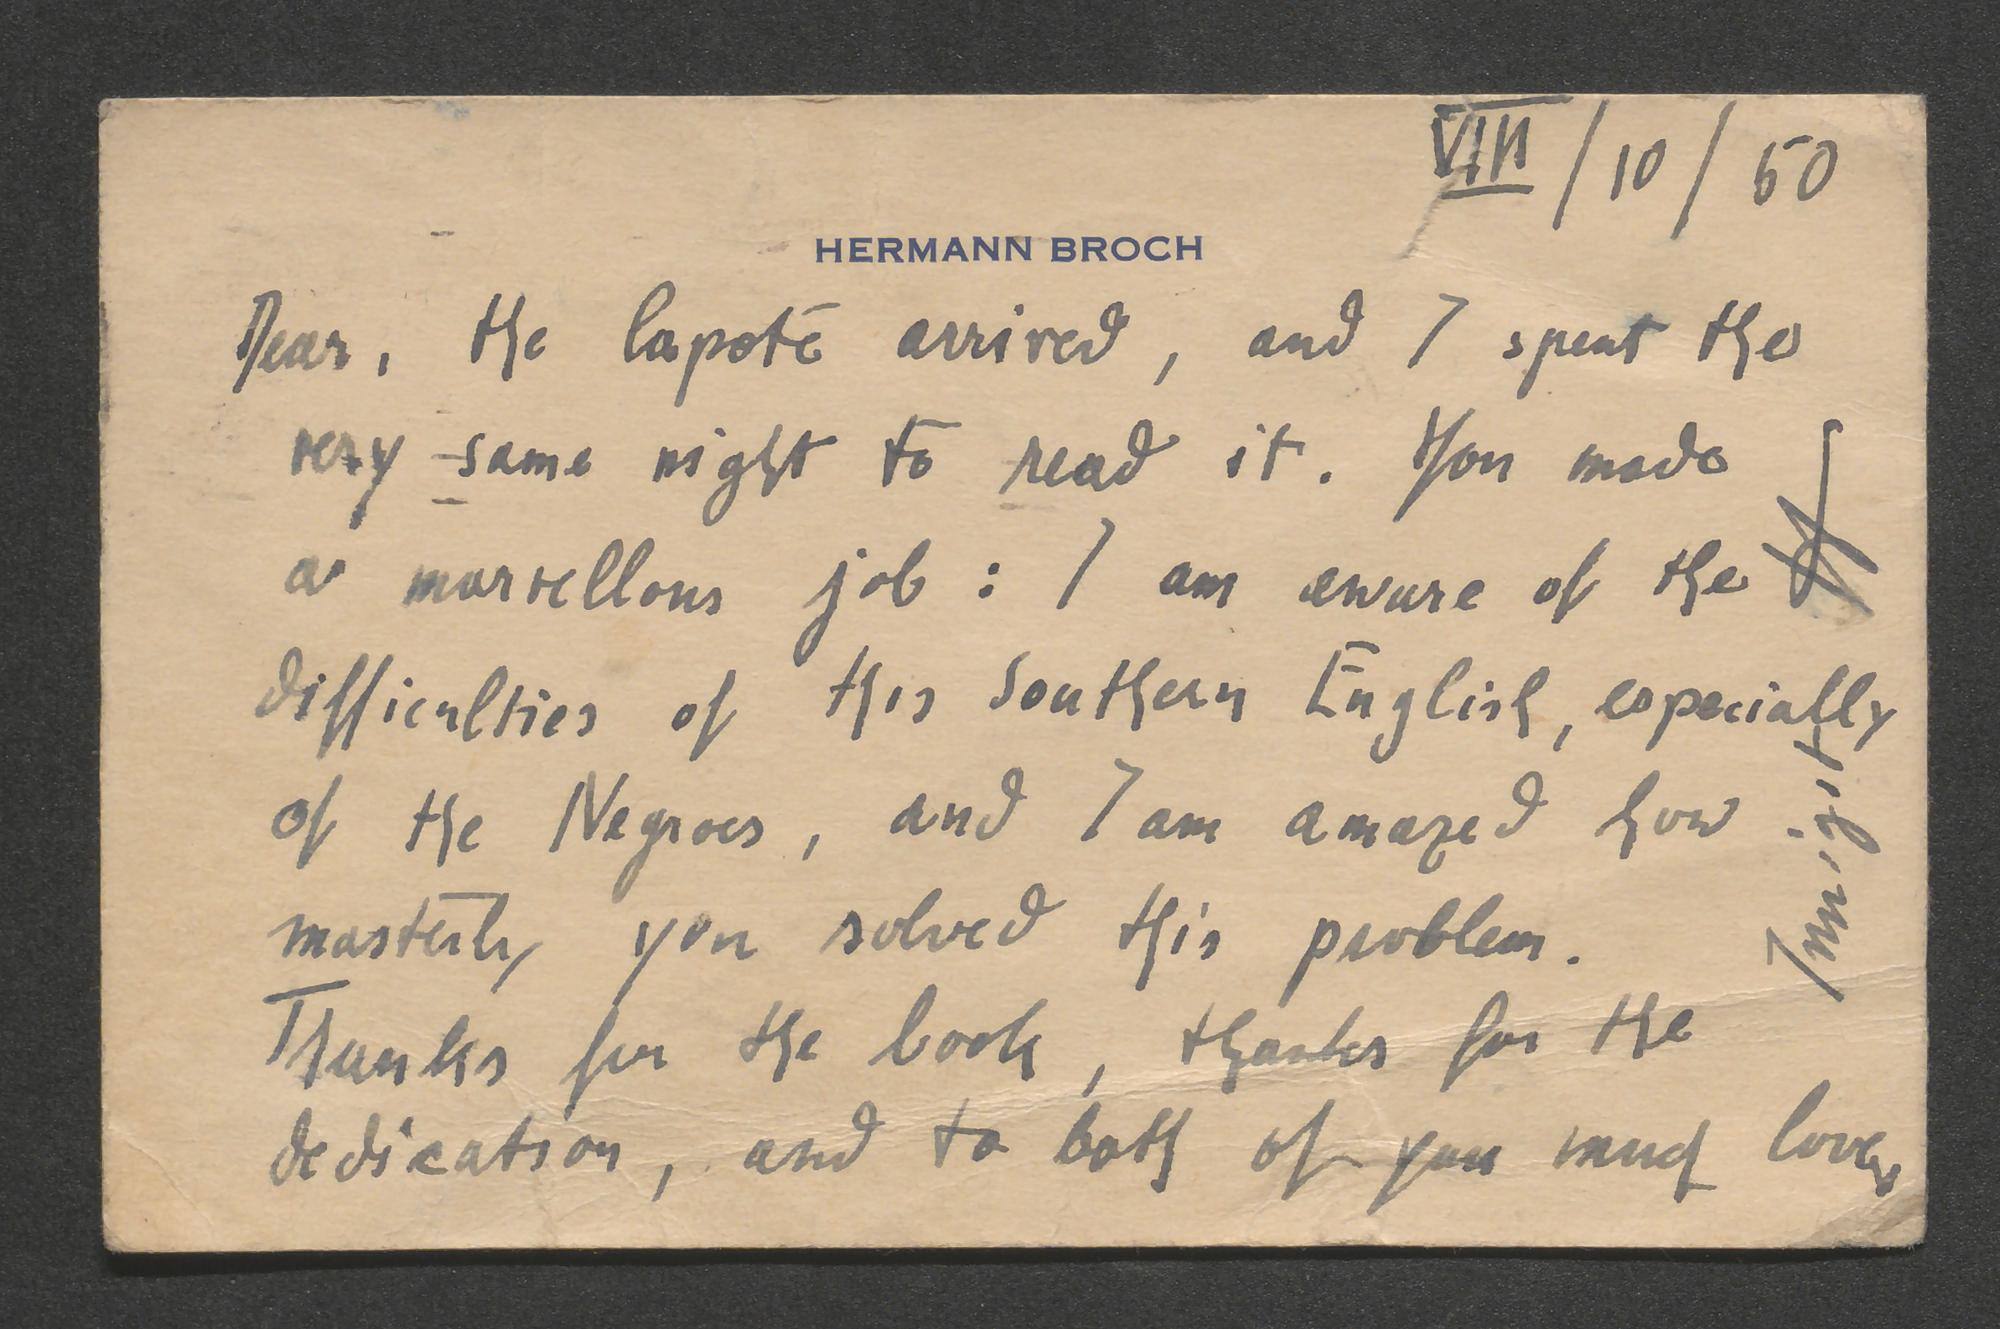 VIII / 10 / 50
HERMANN BROCH
Dear, the Capote arrived, and I spent the
very same night to read it. You made
a marvellous job: I am aware of the
difficulties of this Southern English, especially
of the Negroes, and I am amazed how
masterly you solved this problem.
Thanks for the book, thanks for the
dedication, and to both of you much love,